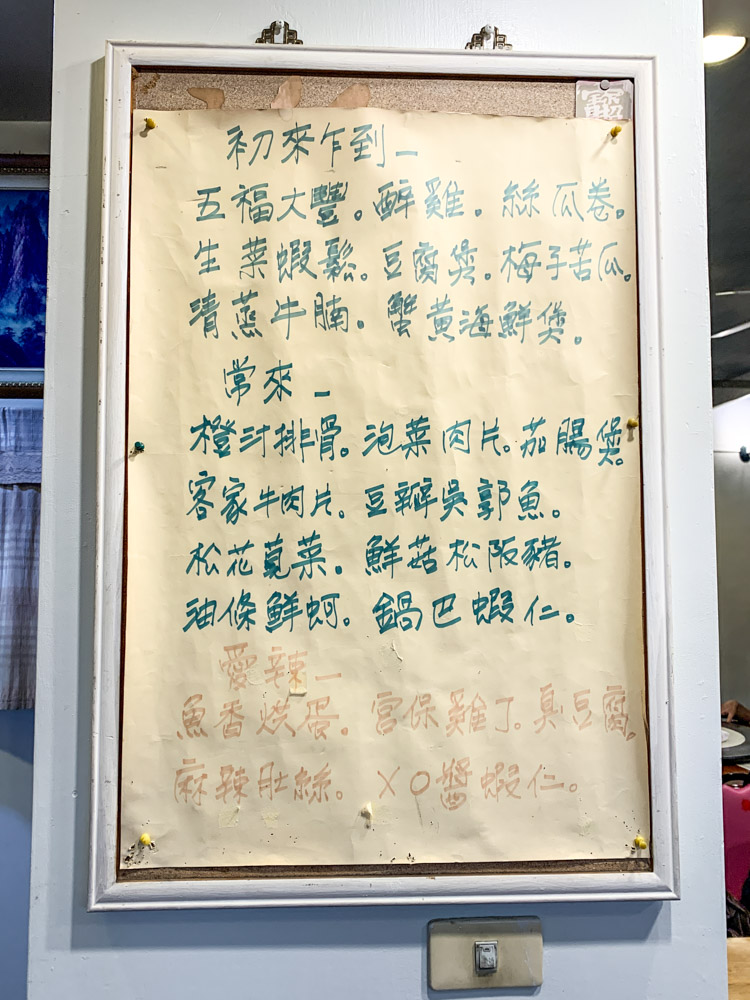 初來乍到_
五福大豐。醉雞。絲瓜卷。
生菜蝦鬆。豆腐煲。梅子苦瓜。
清蒸牛腩。蟹黃海鮮煲。
常來_
橙汁排骨。泡菜肉片。茄腸煲。
客家牛肉片。豆瓣吳郭魚。
松花莧菜。鮮菇松阪豬。
油條鮮蚵。鍋巴蝦仁。
愛辣_
魚香烘蛋。宮保雞丁。臭豆腐,
麻辣肚絲。XO醬蝦仁。